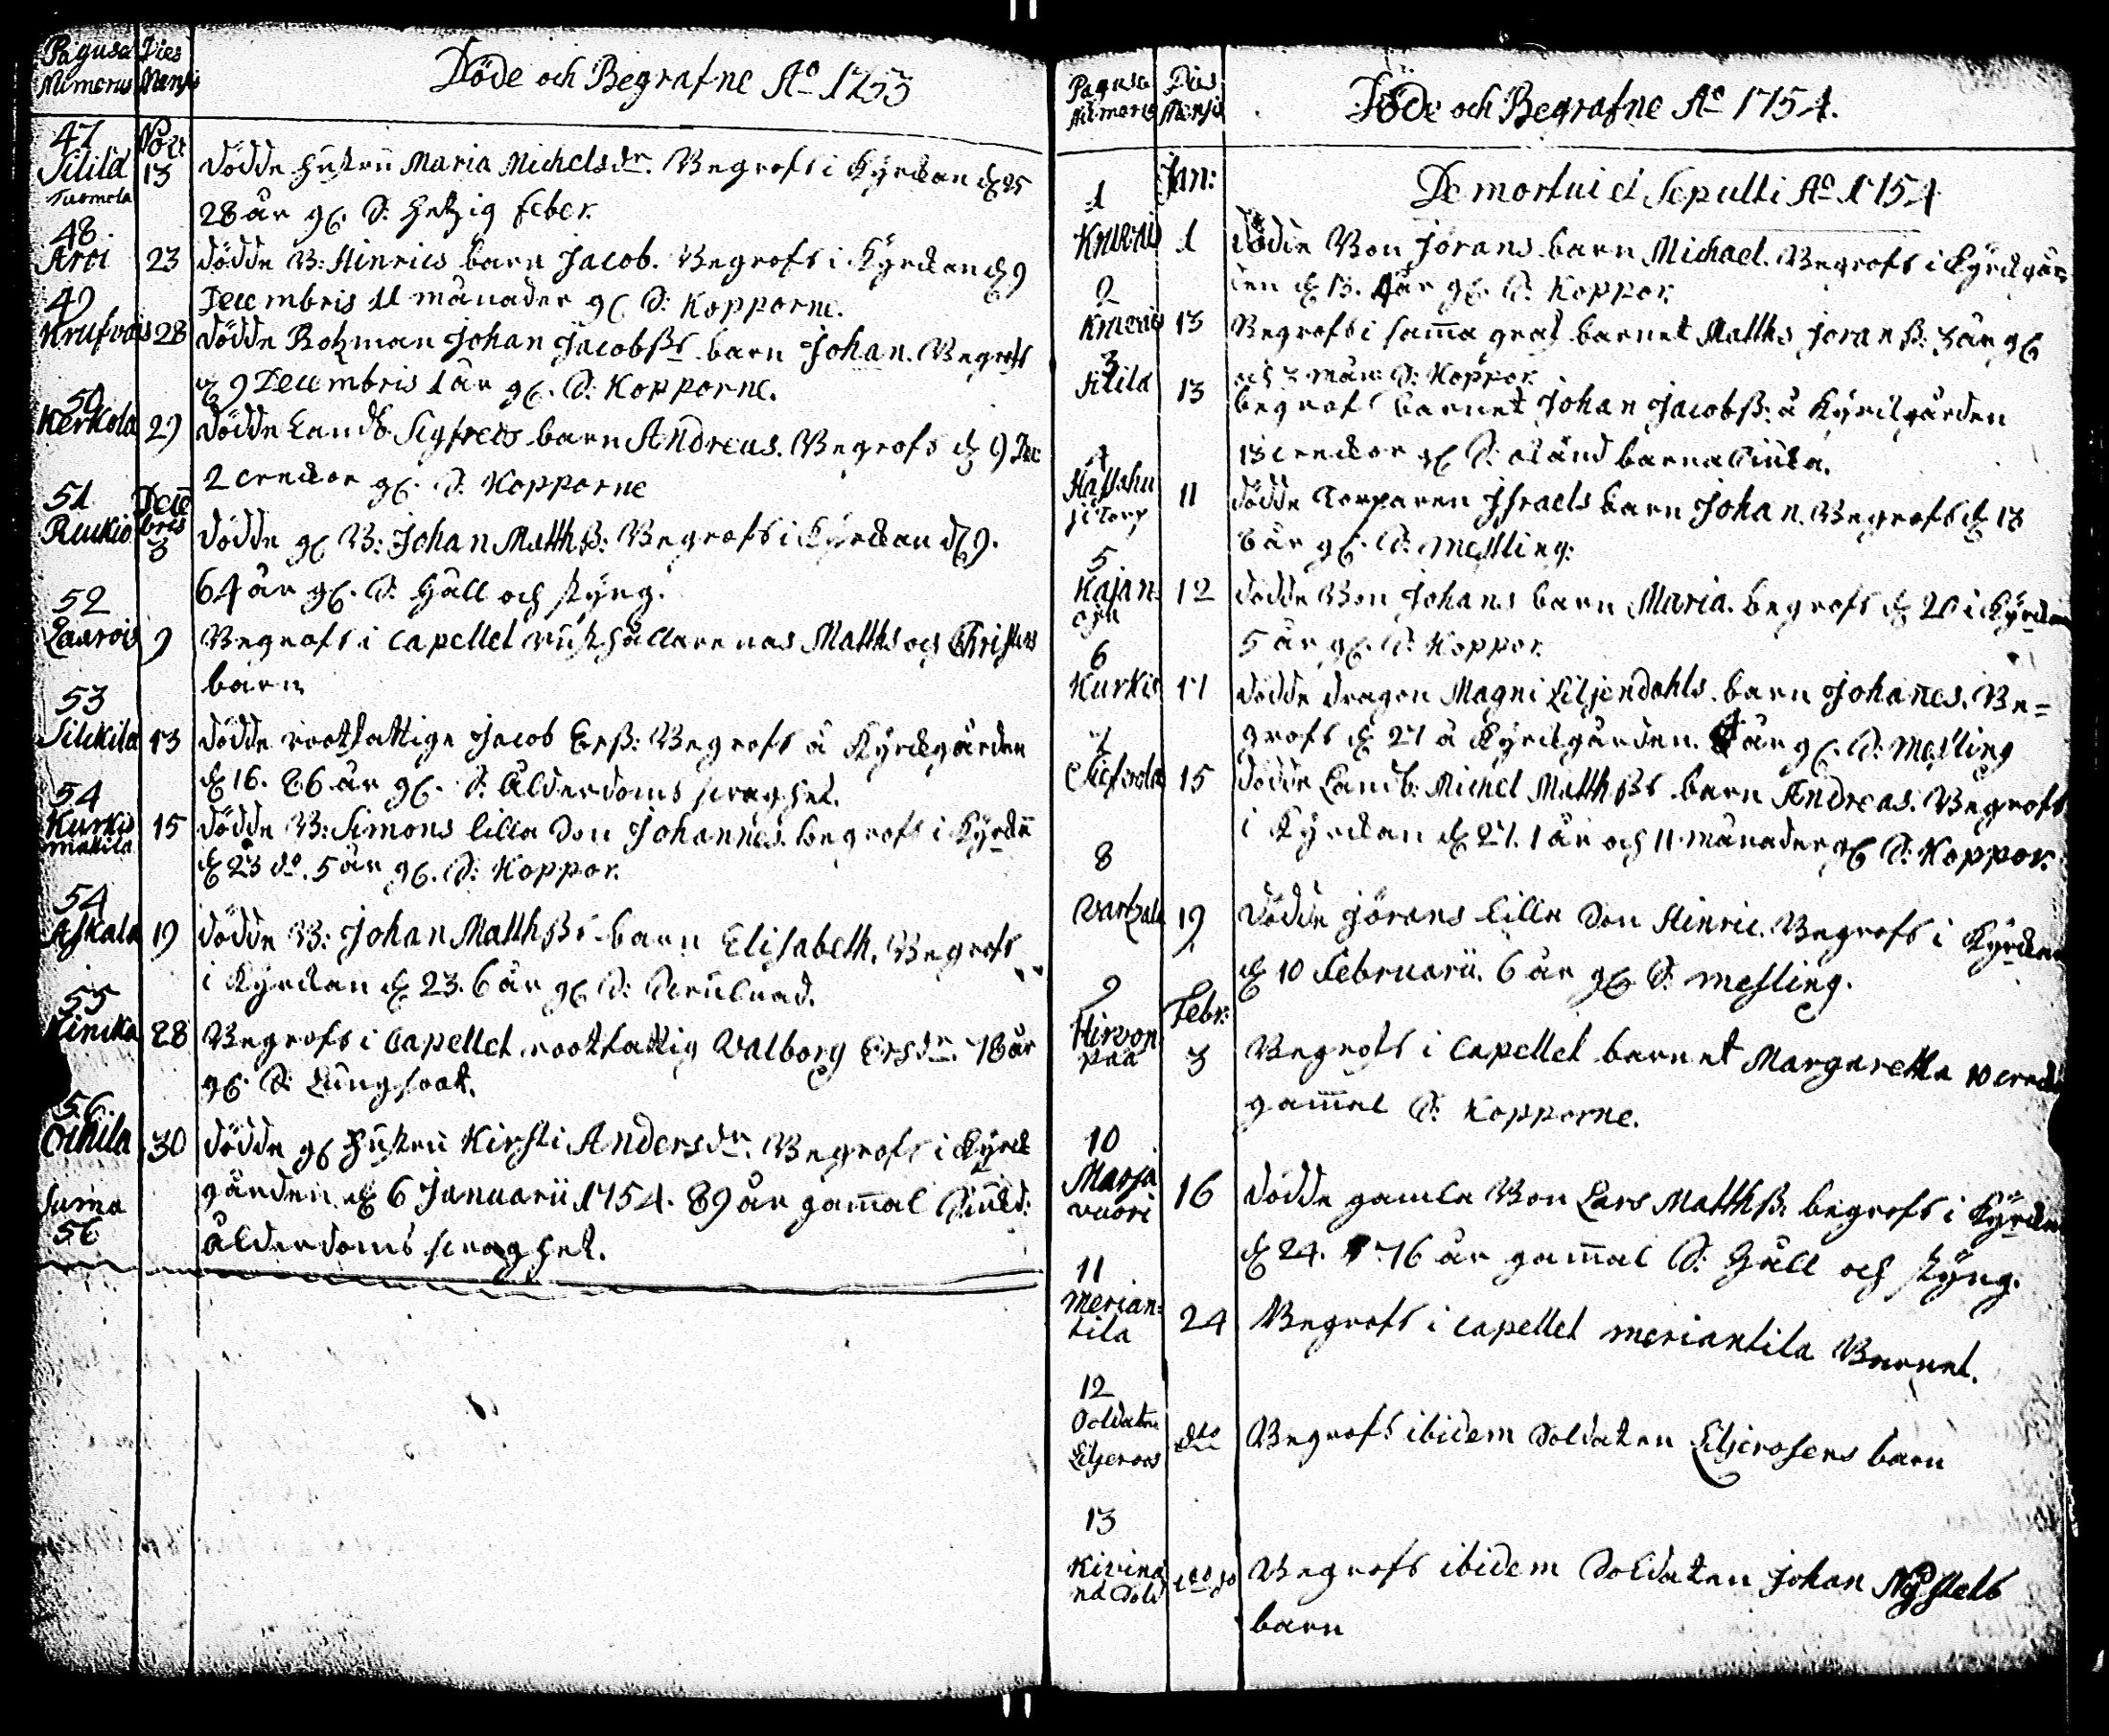 Pagus et Dies
Numerus Mensis
Döde och Begrafne Ao 1753
47 Nov:
Silila 13 dödde hustru Maria Michelsdr. Begrofs i Kyrckan d 25
Tuomola
28 år gl. S: hetzig feber.
48.
Aroi 23 dödde B: Hinrics barn Jacob. Begrofs i Kyrckan d 9
Decembris 11 månader gl S: Kopporne.
49
Krufvais 28 dödde Rotman Johan Jacobßs barn Johan. Begrofs
d 9 Decembris 1 år gl. S: Kopporne.
50
Kerkola 29 dödde Landb. Sigfreds barn Andreas. Begrofs d 9 Dec
2 weckor gl. S: Kopporne
51 Decebris
Ruckio 3 dödde gl B: Johan Matthß: Begrofs i Kyrckan d 9.
64 år gl. S: Håll och styng.
52
Laurois 9 Begrofs i Capellet rusthållarenas Matths och Christers
barn
53
Silckila 13 dödde rootfattige Jacob Erß: Begrofs å Kyrckgården
d 16. 86 år gl. S: Ålderdoms swaghet.
54
Kurkis 15 dödde B: Simons lilla Son Johannes. begrofs i Kyrckn
makila
d 23 do. 5 år gl. S: Koppor.
54
Askala 19 dödde B: Johan Matthßs barn Elisabeth. Begrofs
i Kyrckan d 23. 6 år gl S:
55
Hinicka 28 Begrofs i Capellet rootfattig Valborg Ersdr. 78 år
gl. S: Lungsoot.
56.
30 dödde gl hustru Kirsti Andersdr. Begrofs i Kyrck
gården d 6 Januarii 1754. 89 år gammal
Ålderdoms swaghet.
Suma
56
Pagus et Dies
Numerus Mensis
Döde och Begrafne Ao 1754.
De mortui et Sepulti Ao 1754
1 Jan:
1 dödde Bon Jörans barn Michael. Begrofs i Kyrckgår
den d 13. 4 år gl. S: Koppor.
2
13 Begrofs i samma graf barnet Matths Joranß: 3 år gl
och 3 mån: S: Koppor.
3
Silila 13 begrofs barnet Johan Jacobß: å Kyrckgården
13 weckor gl S: okänd barnasiuka.
4
11 dödde Torparen Israels barn Johan. Begrofs d 13
6 år gl. S: Messling:
5
Kajan 12 dödde Bon Johans barn Maria. begrofs d 20 i Kyrckan
oja
5 år gl. S: Koppor.
6
Kurkis 17 dödde dragon Magni Liljendahls barn Johanes. Be=
grofs d 27 å Kyrckgården. 4 år gl. S: Messling
7
15 dödde Landb: Michel Matthßs barn Andreas. Begrofs
i Kyrckan d 27. 1 år och 11 månader gl S: Koppor.
8
Vartzala 19 dödde Jörans lille Son Hinric. Begrofs i Kyrckan
d 10 Februarii. 6 år gl S: Messling.
9 Febr:
Hirvon 3 Begrofs i Capellet barnet Margaretha 10 weck
päa
gammal S: Kopporne.
10
Marja 16 dödde gamle Bon Lars Matthß. begrofs i Kyrckan
vuori
d 24. 76 år gammal S: Håll och styng.
11
Merian= 24 Begrofs i Capellet meriantila Barnet.
tila
12
Soldaten dto Begrofs ibidem Soldaten Liljerosens barn
Liljeroos
13
Begrofs ibidem Soldaten Johan Nystedts
barn